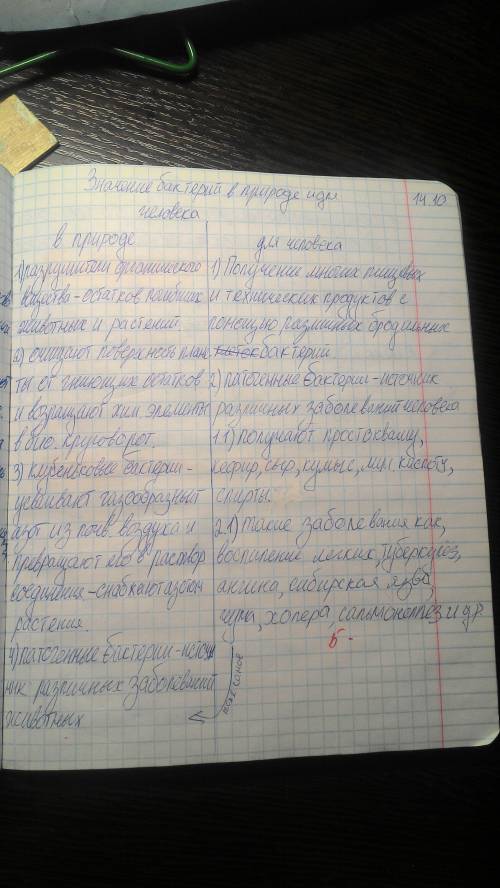 Значение бактерий в природе и для
человека
14.10
в природе
1) разрушители органического
вещества - остатков погибших
животных и растений.
2) очищают поверхность плане
ты от гниющих остатков
и возращают хим. элементы
в био. круговорот.
3) клубеньковые бактерии -
усваивают газообразный
азот из почв. воздуха и
превращают его в раствор
соединение - снабжают азотом
растения.
4) патогенные бактерии - источ
ник различных заболеваний
животных
для человека
1) Получение многих пищевых
и технических продуктов с
помощью различных бродильных
бактерий
2) патогенные бактерии - источник
различных заболеваний человека
1.1) получают простоквашу,
кефир, сыр, кумыс, мол. кислоту,
спирты.
2.1) Такие заболевания как,
воспиление легких, туберкулёз,
ангина, сибирская язва,
чума, холера, сальмонеллёз и др.
5-